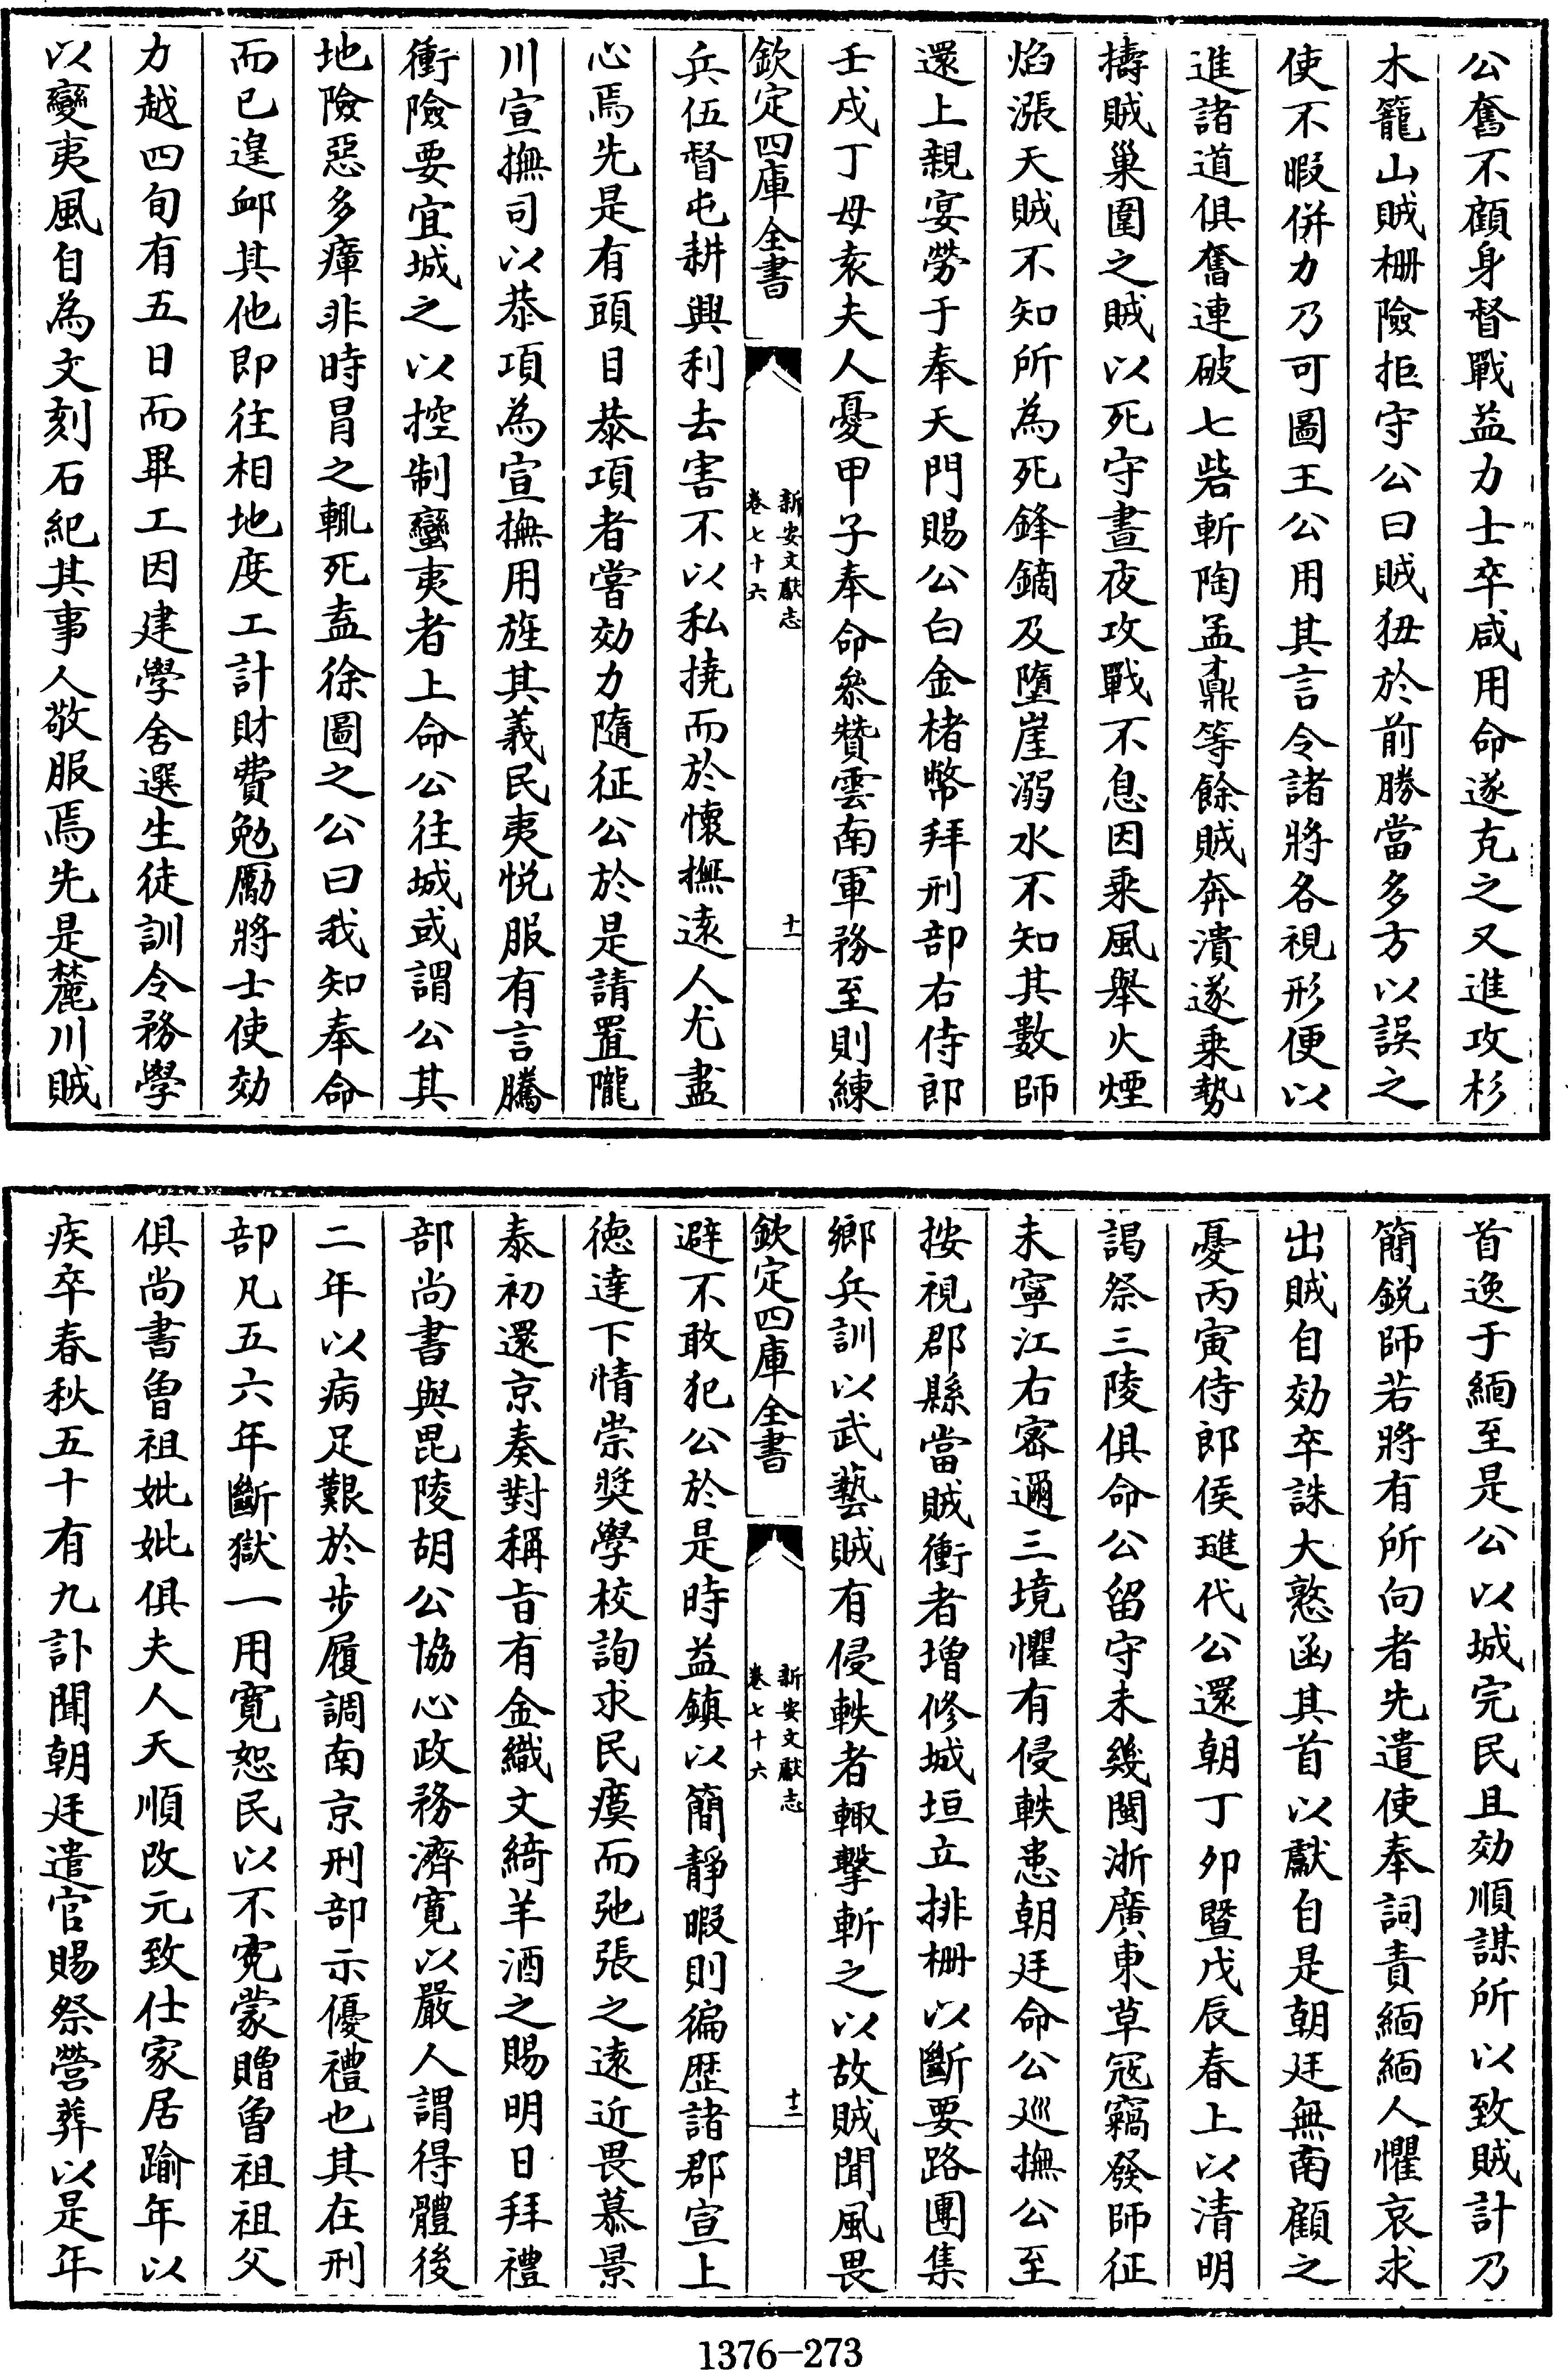 公奮不顧身督戰益力士卒咸用命遂克之又進攻杉
木籠山賊柵險拒守公曰賊狃於前勝當多方以誤之
使不暇併力乃可圖王公用其言令諸將各視形便以
進諸道俱奮連破七砦斬陶孟㭁等餘賊奔潰遂乗勢
擣賊巢圍之賊以死守晝夜攻戰不息因乘風舉火煙
焰漲天賊不知所為死鋒鏑及墮崖溺水不知其數師
還上親宴勞于奉天門賜公白金楮幣拜刑部右侍郎
壬戌丁母袁夫人憂甲子奉命叅贊雲南軍務至則練
欽定四庫全書
新安文獻志
卷七十六
十一
兵伍督屯耕興利去害不以私撓而於懷撫遠人尤盡
心焉先是有頭目恭項者嘗効力隨征公於是請置隴
川宣撫司以恭項為宣撫用旌其義民夷悦服有言騰
衝險要宜城之以控制蠻夷者上命公往城或謂公其
地險惡多瘴非時冒之輒死盍徐圖之公曰我知奉命
而已遑䘏其他即往相地度工計財費勉勵將士使効
力越四旬有五日而畢工因建學舍選生徒訓令務學
以變夷風自為文刻石紀其事人敬服焉先是麓川賊
首逸于緬至是公以城完民且効順謀所以致賊計乃
簡鋭師若將有所向者先遣使奉詞責緬緬人懼哀求
出賊自効卒誅大憝函其首以獻自是朝廷無南顧之
憂丙寅侍郎侯璡代公還朝丁夘暨戊辰春上以清明
謁祭三陵俱命公留守未幾閩浙廣東草冦竊發師征
未寧江右密邇三境懼有侵軼患朝廷命公廵撫公至
按視郡縣當賊衝者增修城垣立排柵以斷要路團集
鄉兵訓以武藝賊有侵軼者輙擊斬之以故賊聞風畏
欽定四庫全書
新安文獻志
卷七十六
十二
避不敢犯公於是時益鎮以簡靜暇則徧歴諸郡宣上
德達下情崇奬學校詢求民瘼而弛張之遠近畏慕景
泰初還京奏對稱旨有金織文綺羊酒之賜明日拜禮
部尚書與毘陵胡公協心政務濟寛以嚴人謂得體後
二年以病足艱於步履調南京刑部示優禮也其在刑
部凡五六年斷獄一用寛恕民以不寃蒙贈曾祖祖父
俱尚書曾祖妣妣俱夫人天順改元致仕家居踰年以
疾卒春秋五十有九訃聞朝廷遣官賜祭營葬以是年
1376-273